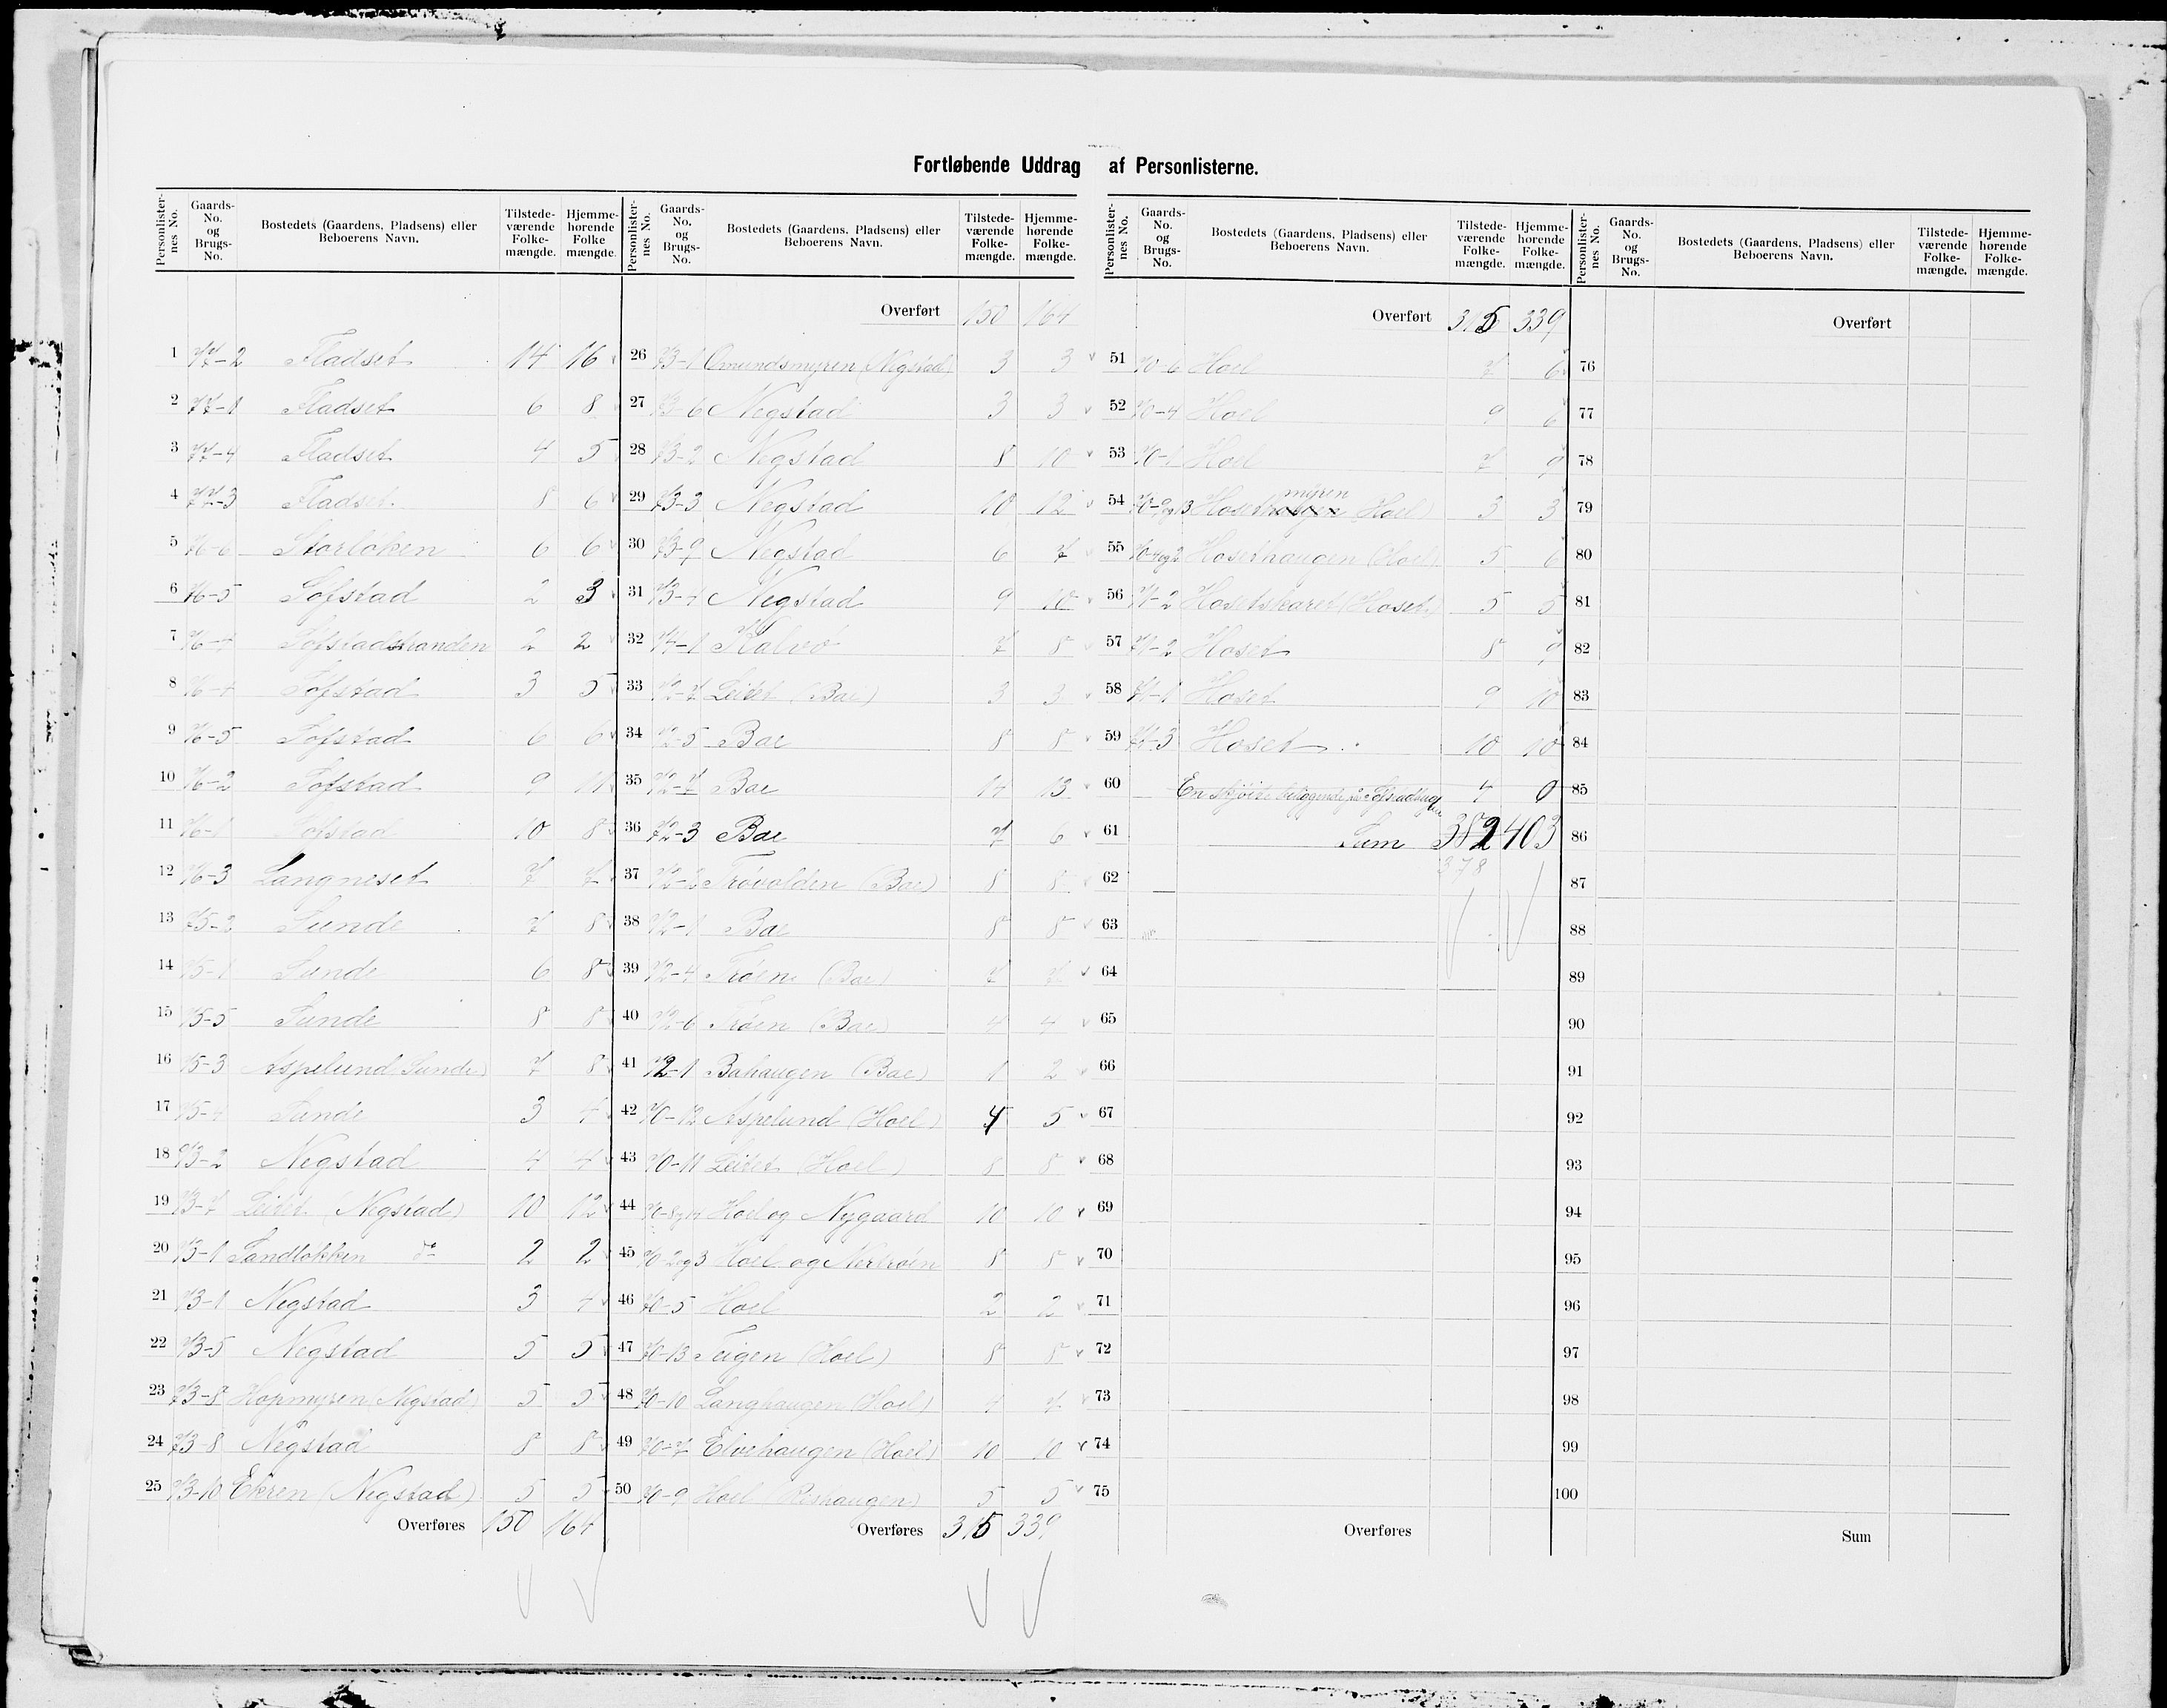 Fortløbende Uddrag af Personlisterne.
Personlister-nes No. Gaards-No. og Brugs-No. Bostedets (Gaardens, Pladsens) eller Beboerens Navn. Tilstede-værende Folke-mængde. Hjemme-hørende Folke mængde.
1 77-2 Fladset 14 16
2 77-1 Fladset 6 8
3 77-4 Fladset 4 5
4 77-3 Fladset 8 6
5 76-6 Storløken 6 6
6 76-5 Tofstad 2 3
7 76-4 Tofstadstranden 2 2
8 76-4 Tofstad 3 5
9 76-5 Tofstad 6 6
10 76-2 Tofstad 9 11
11 76-1 Tofstad 10 8
12 76-3 Langneset 7 7
13 75-2 Sunde 7 8
14 75-1 Sunde 6 8
15 75-5 Sunde 8 8
16 75-3 Aspelund (Sunde) 7 8
17 75-4 Sunde 3 4
18 73-2 Negstad 4 4
19 73-7 Leitet (Negstad) 10 12
20 73-1 Sandlokken do 2 2
21 73-1 Negstad 3 4
22 73-5 Negstad 5 5
23 73-8 Hopmyren (Negstad) 5 5
24 73-8 Negstad 8 8
25 73-10 Ekren (Negstad) 5 5
Overføres 150 164
Personlister-nes No. Gaards-No. og Brugs-No. Bostedets (Gaardens, Pladsens) eller Beboerens Navn. Tilstede-værende Folke-mængde. Hjemme-hørende Folke-mængde.
Overført 150 164
26 73-1 Omundsmyren (Negstad) 3 3
27 73-6 Negstad 3 3
28 73-2 Negstad 8 10
29 73-3 Negstad 10 12
30 73-9 Negstad 6 7
31 73-4 Negstad 9 10
32 74-1 Kalvø 7 8
33 72-7 Leitet (Bae) 3 3
34 72-5 Bae 8 8
35 72-7 Bae 14 13
36 72-3 Bae 7 6
37 72-2 Trøvolden (Bae) 8 8
38 72-1 Bae 8 8
39 72-4 Trøen (Bae) 7 7
40 72-6 Trøen (Bae) 4 4
41 72-1 Bahaugen (Bae) 1 2
42 70-12 Aspelund (Hoel) 4 5
43 70-11 Leitet (Hoel) 8 8
44 70-8 og 14 Hoel og Nygaard 10 10
45 70-2 og 3 Hoel og Nertrøen 8 8
46 70-5 Hoel 2 2
47 70-13 Teigen (Hoel) 8 8
48 70-10 Langhaugen (Hoel) 4 7
49 70-7 Elvehaugen (Hoel) 10 10
50 70-9 Hoel (Reshaugen) 5 5
Overføres 315 339
Personlister-nes No. Gaards-No. og Brugs-No. Bostedets (Gaardens, Pladsens) eller Beboerens Navn. Tilstede-værende Folke-mængde. Hjemme-hørende Folke-mængde.
Overført 315 339
51 70-6 Hoel 7 6
52 70-4 Hoel 9 6
53 70-1 Hoel 7 9
myren
54 70-9 og 13 Hoset (Hoel) 3 3
55 70-4 og 2 Hosethaugen (Hoel) 5 6
56 71-2 Hosetskaret (Hoset) 5 5
57 71-2 Hoset 8 9
58 71-1 Hoset 9 10
59 71-3 Hoset 10 10
60 En skjøite beliggende på 4 0
61 Sum 382 403
62 378
63
64
65
66
67
68
69
70
71
72
73
74
75
Overføres
Personlister-nes No. Gaards-No. og Brugs-No. Bostedets (Gaardens, Pladsens) eller Beboerens Navn. Tilstede-værende Folke-mængde. Hjemme-hørende Folke-mængde.
Overført
76
77
78
79
80
81
82
83
84
85
86
87
88
89
90
91
92
93
94
95
96
97
98
99
100
Sum